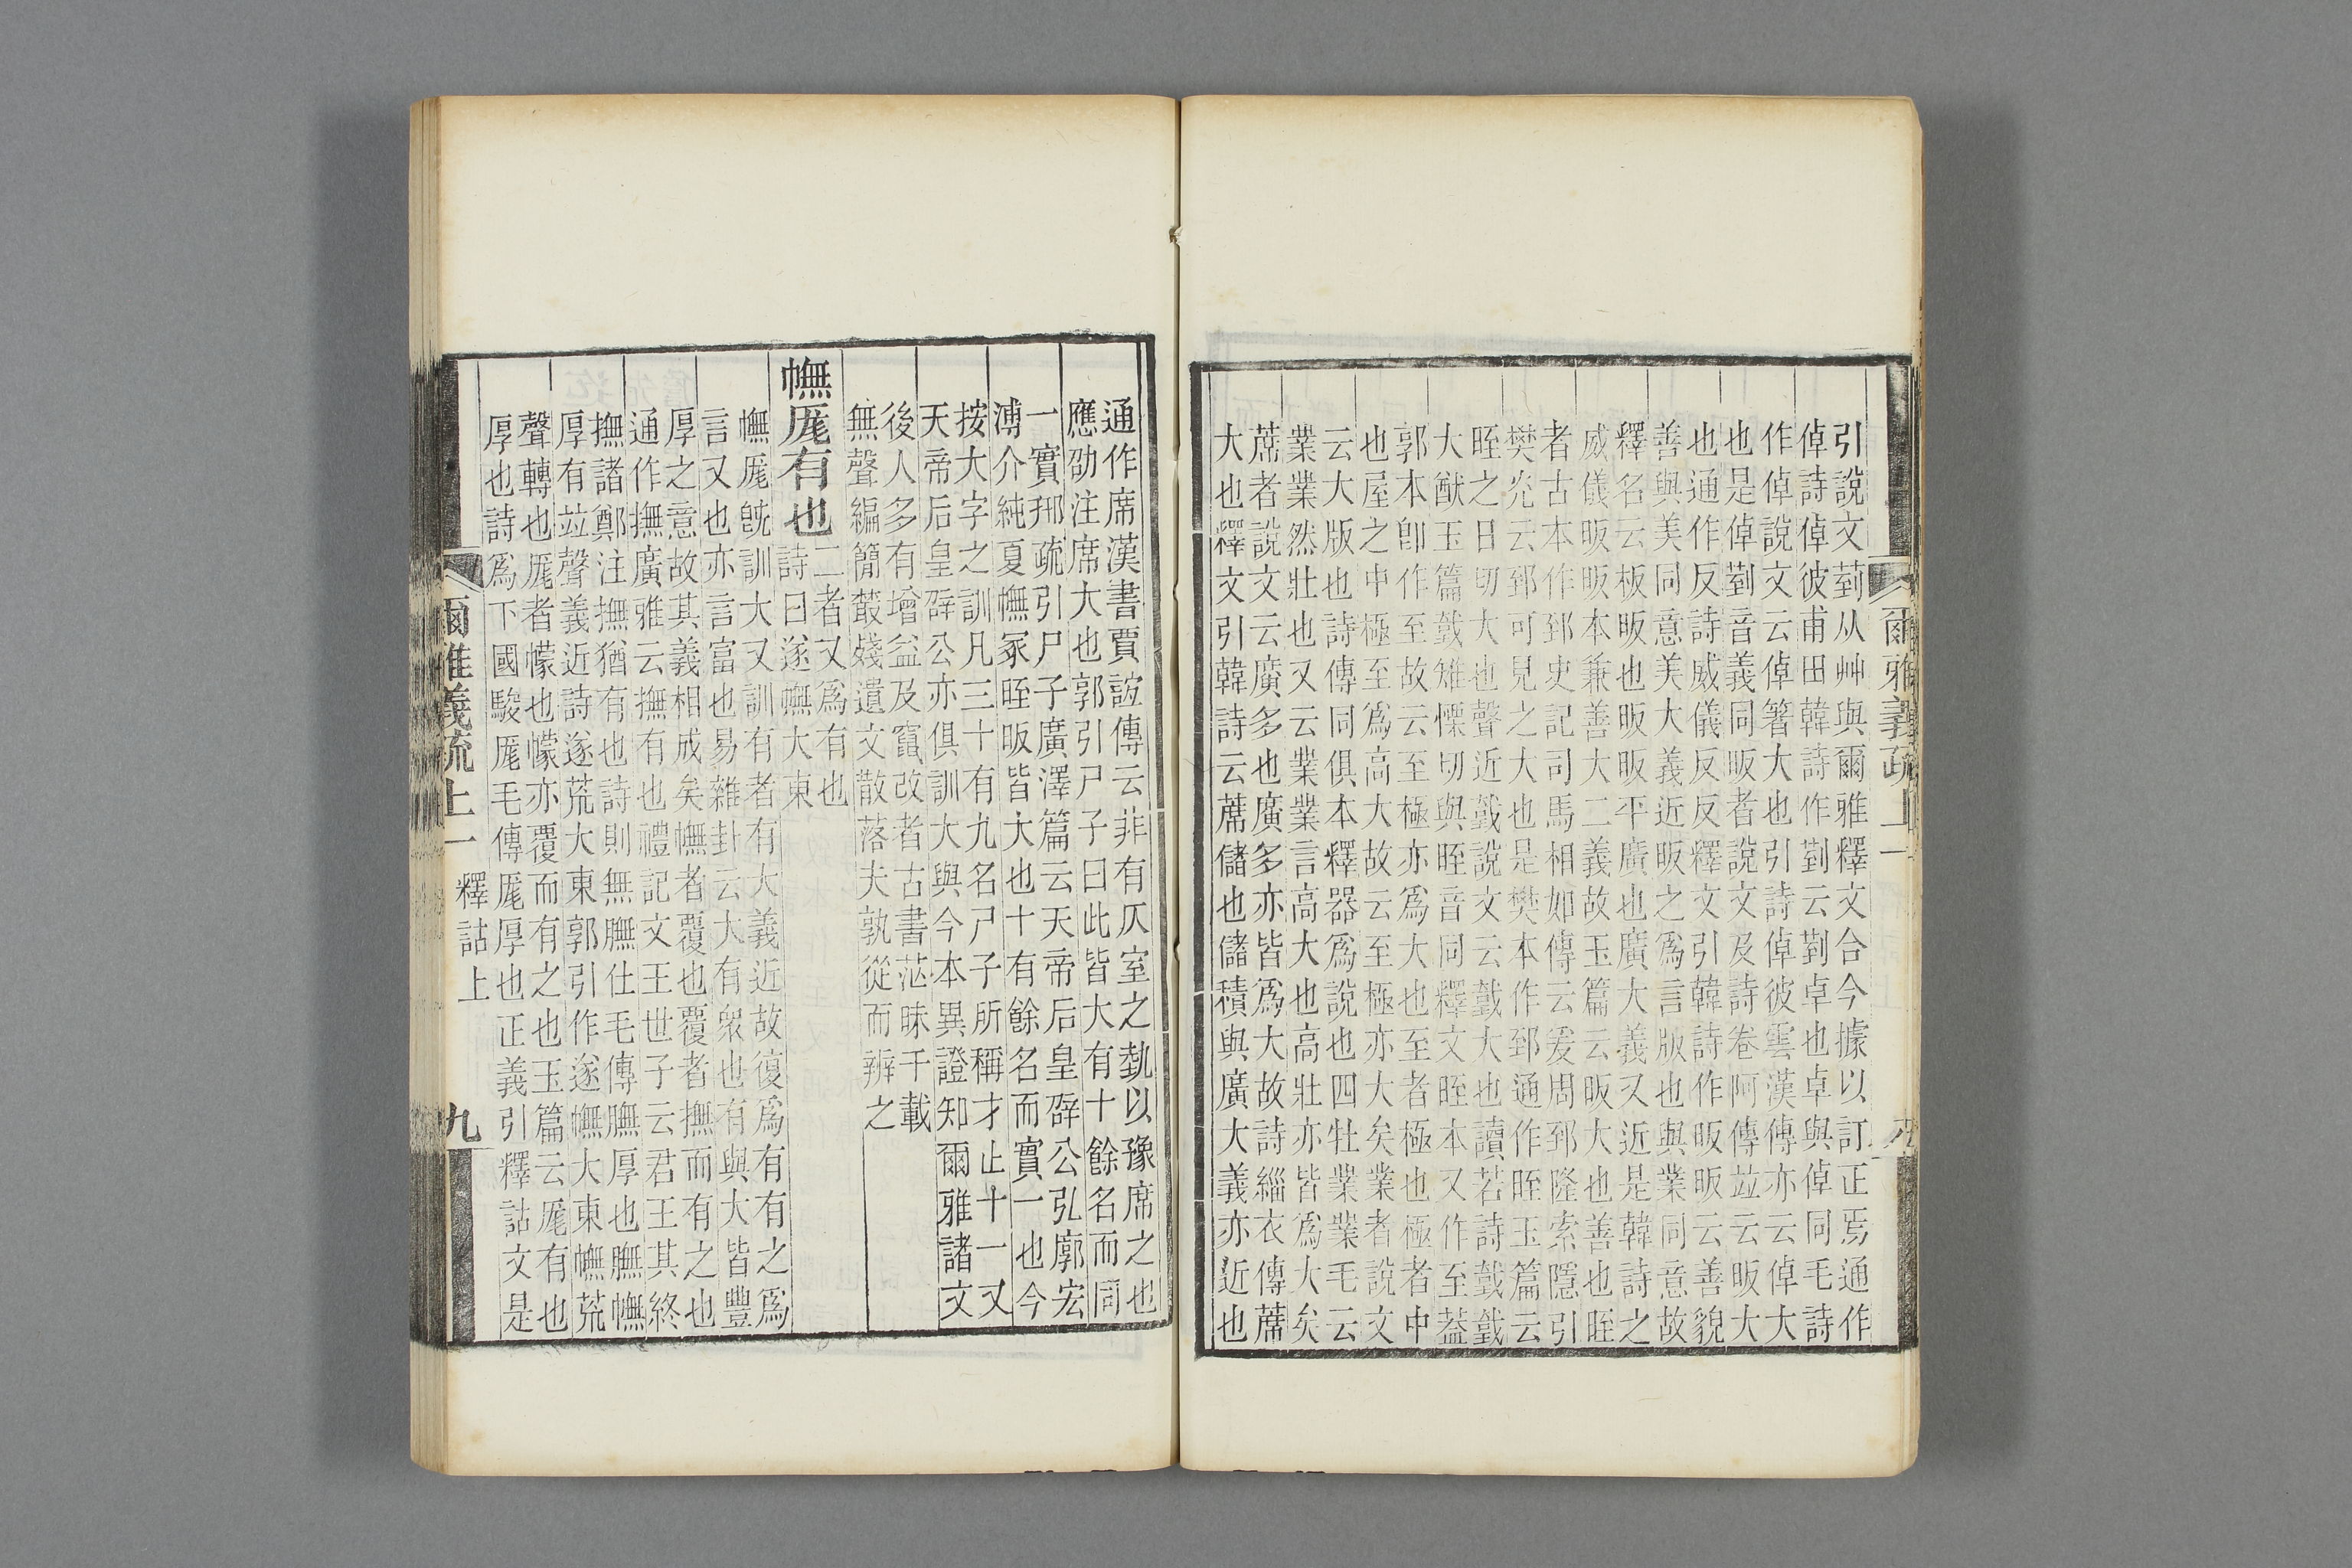 爾雅義疏上一
八
引說文菿从艸與爾雅釋文合今據以訂正焉通作
倬詩倬彼甫田韓詩作菿云菿卓也卓與倬同毛詩
作倬說文云倬箸大也引詩倬彼雲漢傳亦云倬大
也是倬菿音義同昄者說文及詩卷阿傳竝云昄大
也通作反詩威儀反反釋文引韓詩作昄昄云善貌
善與美同意美大義近昄之爲言版也與業同意故
釋名云板昄也昄昄平廣也廣大義又近是韓詩之
威儀昄昄本兼善大二義故玉篇云昄大也善也晊
者古本作郅史記司馬相如傳云爰周郅隆索隱引
樊光云郅可見之大也是樊本作郅通作晊玉篇云
晊之日切大也聲近㦶說文云㦶大也讀若詩㦶㦶
大猷玉篇㦶雉慄切與晊音同釋文晊本又作至葢
郭本卽作至故云至極亦爲大也至者極也極者中
也屋之中極至爲高大故云至極亦大矣業者說文
云大版也詩傳同俱本釋器爲說也四牡業業毛云
業業然壯也又云業業言高大也高壯亦皆爲大矣
蓆者說文云廣多也廣多亦皆爲大故詩緇衣傳蓆
大也釋文引韓詩云蓆儲也儲積與廣大義亦近也
通作席漢書賈誼傳云非有仄室之埶以豫席之也
應劭注席大也郭引尸子曰此皆大有十餘名而同
一實邢疏引尸子廣澤篇云天帝后皇辟公弘廓宏
溥介純夏幠冢晊昄皆大也十有餘名而實一也今
按大字之訓凡三十有九名尸子所稱才止十一又
天帝后皇辟公亦俱訓大與今本異證知爾雅諸文
後人多有增益及竄改者古書茫昧千載
無聲編簡叢殘遺文散落夫孰從而辨之
幠厖有也
二者又爲有也
詩曰遂幠大東
幠厖旣訓大又訓有者有大義近故復爲有有之爲
言又也亦言富也易雜卦云大有衆也有與大皆豐
厚之意故其義相成矣幠者覆也覆者撫而有之也
通作撫廣雅云撫有也禮記文王世子云君王其終
撫諸鄭注撫猶有也詩則無膴仕毛傳膴厚也膴幠
厚有竝聲義近詩遂荒大東郭引作遂幠大東幠荒
聲轉也厖者幪也幪亦覆而有之也玉篇云厖有也
厚也詩爲下國駿厖毛傳厖厚也正義引釋詁文是
爾雅義疏上一
釋詁上
九